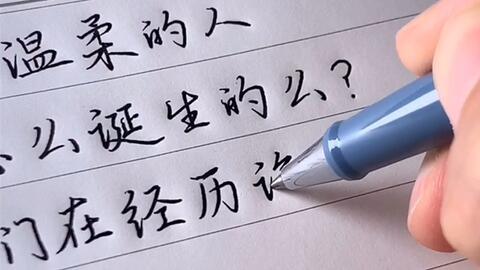 温柔的人
么诞生的么?
们在经历